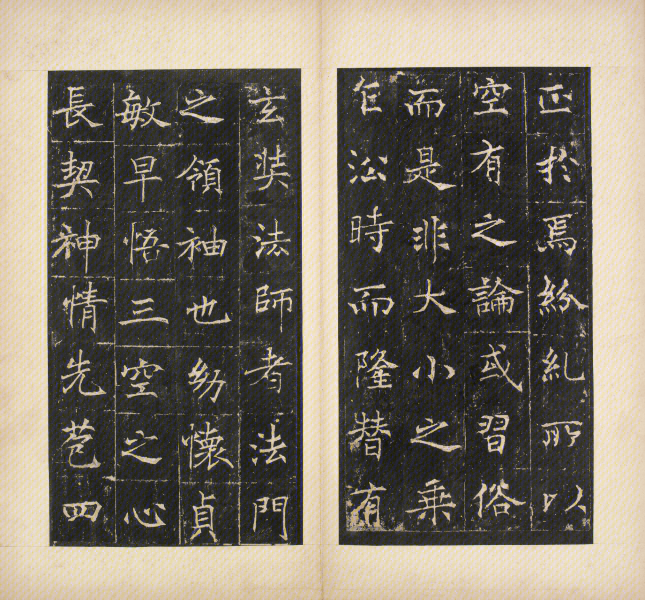 正於焉紛糺所以
空有之論或習俗
而是非大小之乗
乍沿時而隆替有
玄奘法師者法門
之領袖也幼懷貞
敏早悟三空之心
長契神情先苞四